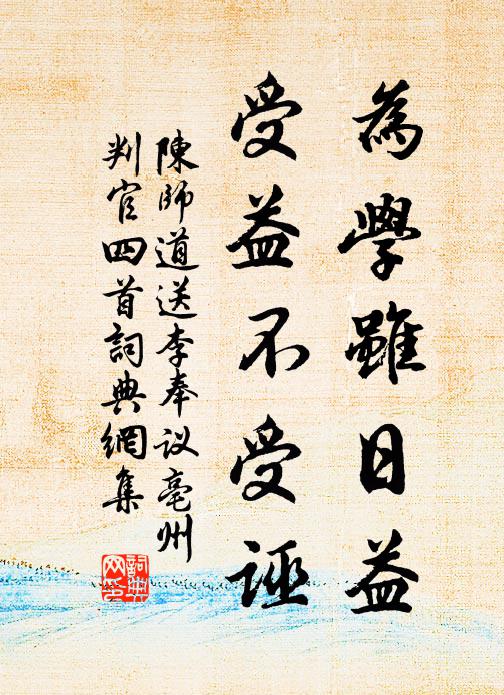 為學雖日益
受益不受誣
陳師道送李奉议亳州
判官四首詞典網集